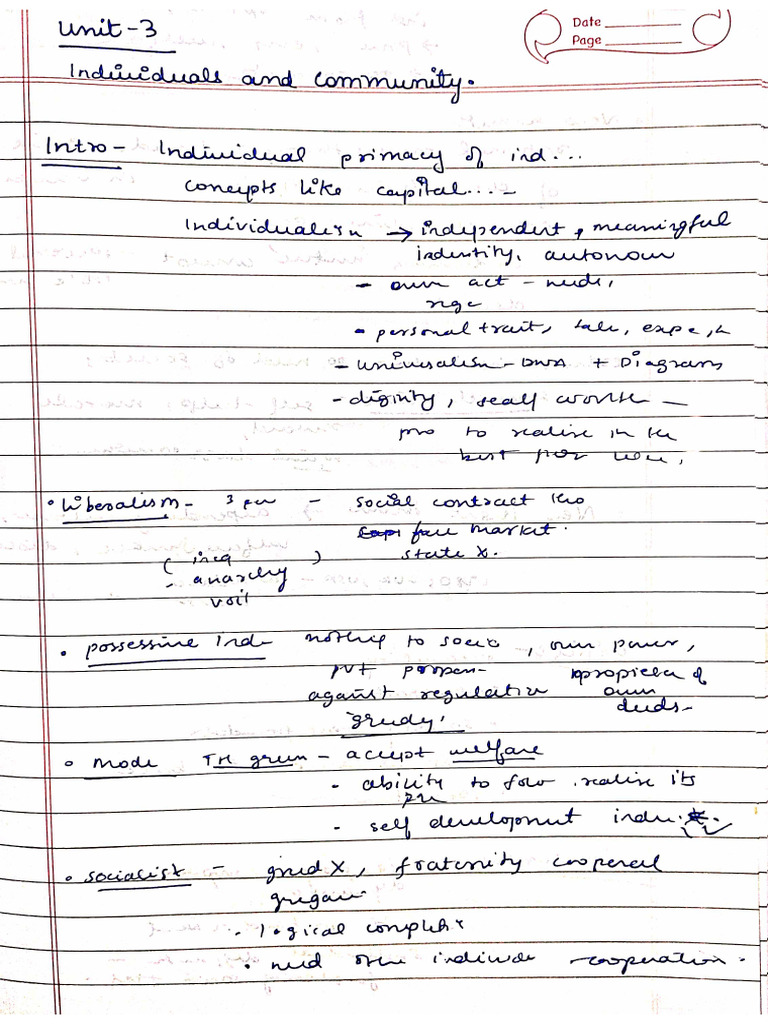 Unit-3
Date
Page
Individuals and community.
Intro - Individual primacy of ind...
concepts like capital... -
Individualism → independent, meaningful
indentity, autonom
- own act - needs,
- personal trait, tale, expe,
- universalism - DWA + Diagram
- diginity, sealf worth -
pro to realise in the
best
• Liberalism - 3 - social contract theo
free market.
( ineq ) state x.
- anarchy
voil
• possessive Ind- nothig to socie, own power,
pvt propen- propieter of
against regulation own
deeds-
greedy,
• Mode TH green - accept welfare
- ability to realise its
- self development indu.
• socialist - greed X, fraternity cooperal
gregari
• logical complex
• need other individe - cooperation.